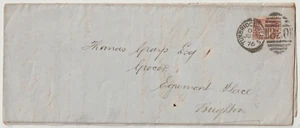 Thomas Grays Esq
Grocer
Egremont Place
Brighton